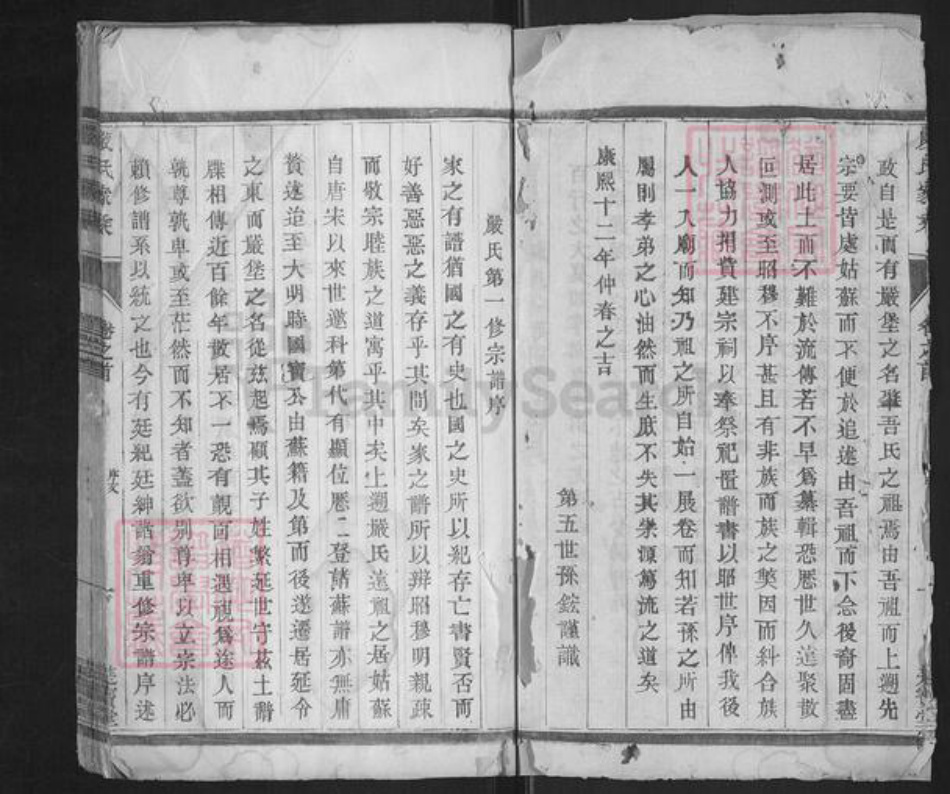 政自是而有嚴堡之名肇吾氏之祖焉由吾祖而上溯先
宗要皆處姑蘇而不便於追述由吾祖而下念後裔固盡
居此土而不難於流傳若不早爲纂輯恐歷世久遠聚散
回測或至昭穆不序甚且有非族而族之獘因而糾合族
人協力捐貲建宗祠以奉祭祀置譜書以昭世序俾我後
人一入廟而知乃祖之所自始一展卷而知若孫之所由
屬則孝弟之心油然而生庶不失其崇源篤流之道矣
康熙十二年仲春之吉
第五世孫鋐謹識
嚴氏第一修宗譜序
家之有譜猶國之有史也國之史所以紀存亡書賢否而
好善惡惡之義存乎其間矣家之譜所以辨昭穆明親疎
而敬宗睦族之道寓乎其中矣上溯嚴氏遠祖之居姑蘇
自唐宋以來世遂科第代有顯位歷二登諸蘇譜亦無庸
贅述迨至大明時國寶公由蘇籍及第而後遂遷居延令
之東而嚴堡之名從茲起焉顧其子姓繁延世守茲土譜
牒相傳近百餘年散居不一恐有覿面相遇視爲途人而
孰尊孰卑或至茫然而不知者蓋欲別尊卑以立宗法必
賴修譜系以統之也今有廷紀廷紳諸翁重修宗譜序述
嚴氏家乘
卷之首
序文
一
FamilySearch